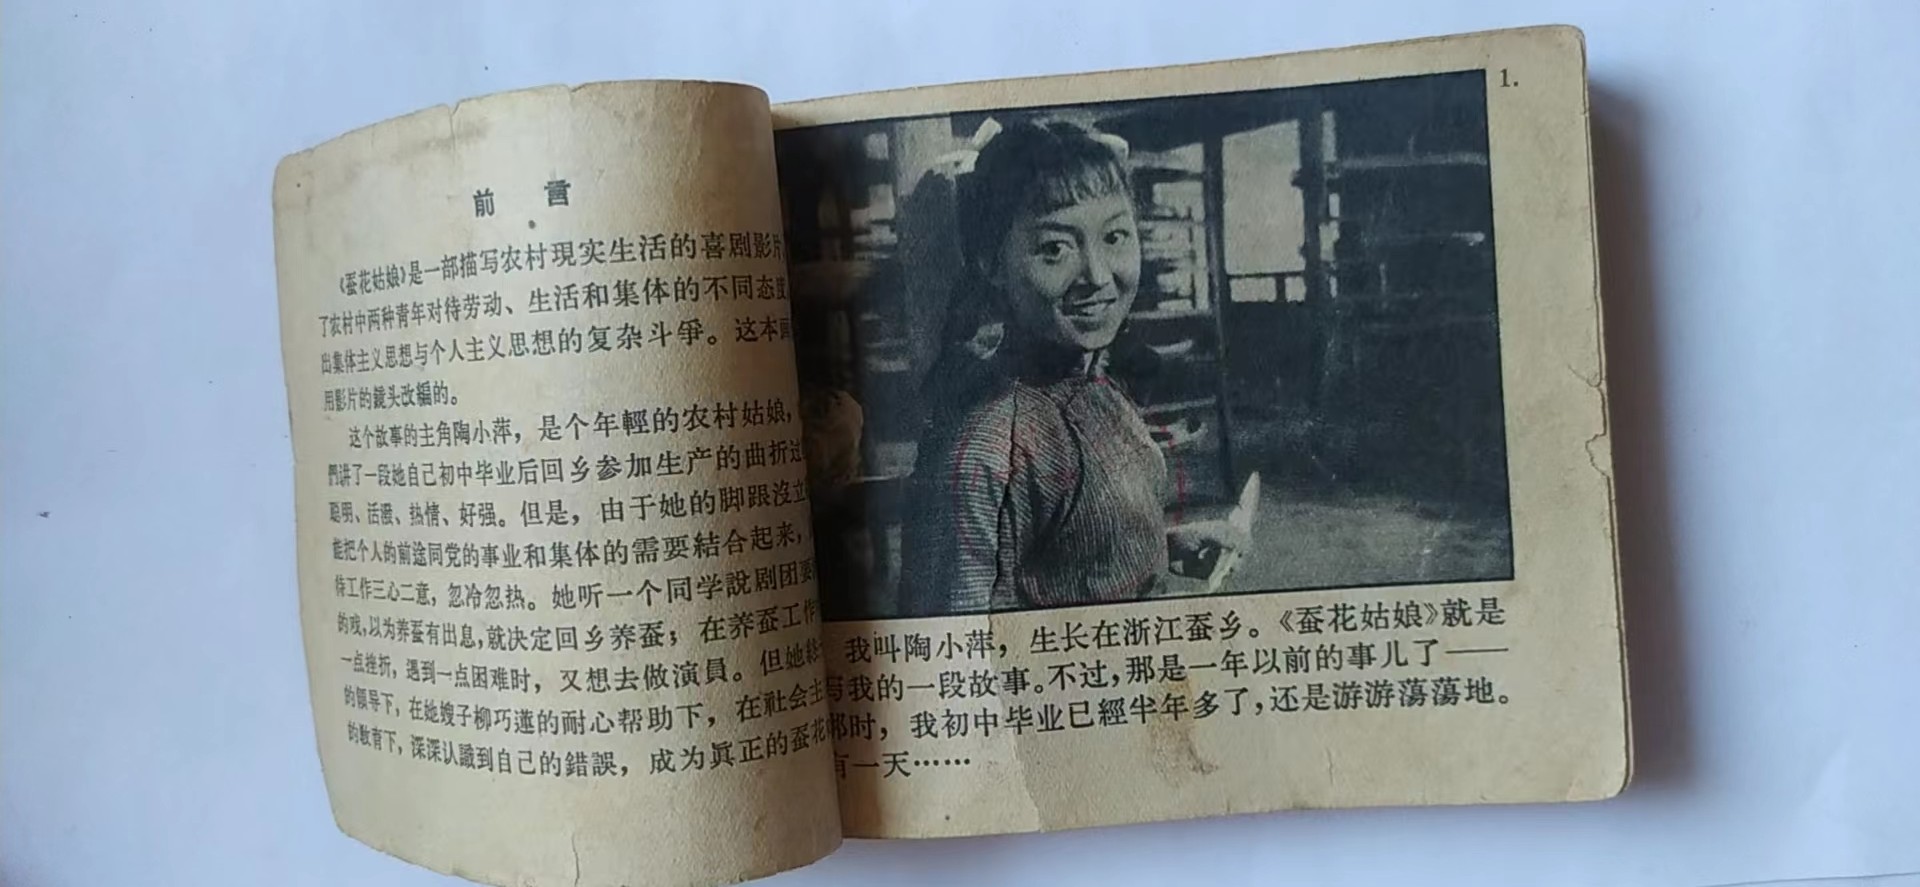 前言
《蚕花姑娘》是一部描写农村現实生活的喜剧影片
了农村中两种青年对待劳动、生活和集体的不同态度
出集体主义思想与个人主义思想的复杂斗爭。这本画
用影片的鏡头改編的。
这个故事的主角陶小萍，是个年輕的农村姑娘，
們讲了一段她自己初中毕业后回乡参加生产的曲折过
聪明、活潑、热情、好强。但是，由于她的脚跟沒立
能把个人的前途同党的事业和集体的需要結合起来，
待工作三心二意，忽冷忽热。她听一个同学說剧团要
的戏，以为养蚕有出息，就决定回乡养蚕；在养蚕工作
一点挫折，遇到一点困难时，又想去做演員。但她
的領导下，在她嫂子柳巧蓮的耐心帮助下，在社会主
的敎育下，深深认識到自己的錯誤，成为眞正的蚕花
1.
我叫陶小萍，生长在浙江蚕乡。《蚕花姑娘》就是
写我的一段故事。不过，那是一年以前的事儿了——
那时，我初中毕业已經半年多了，还是游游蕩蕩地。
有一天……